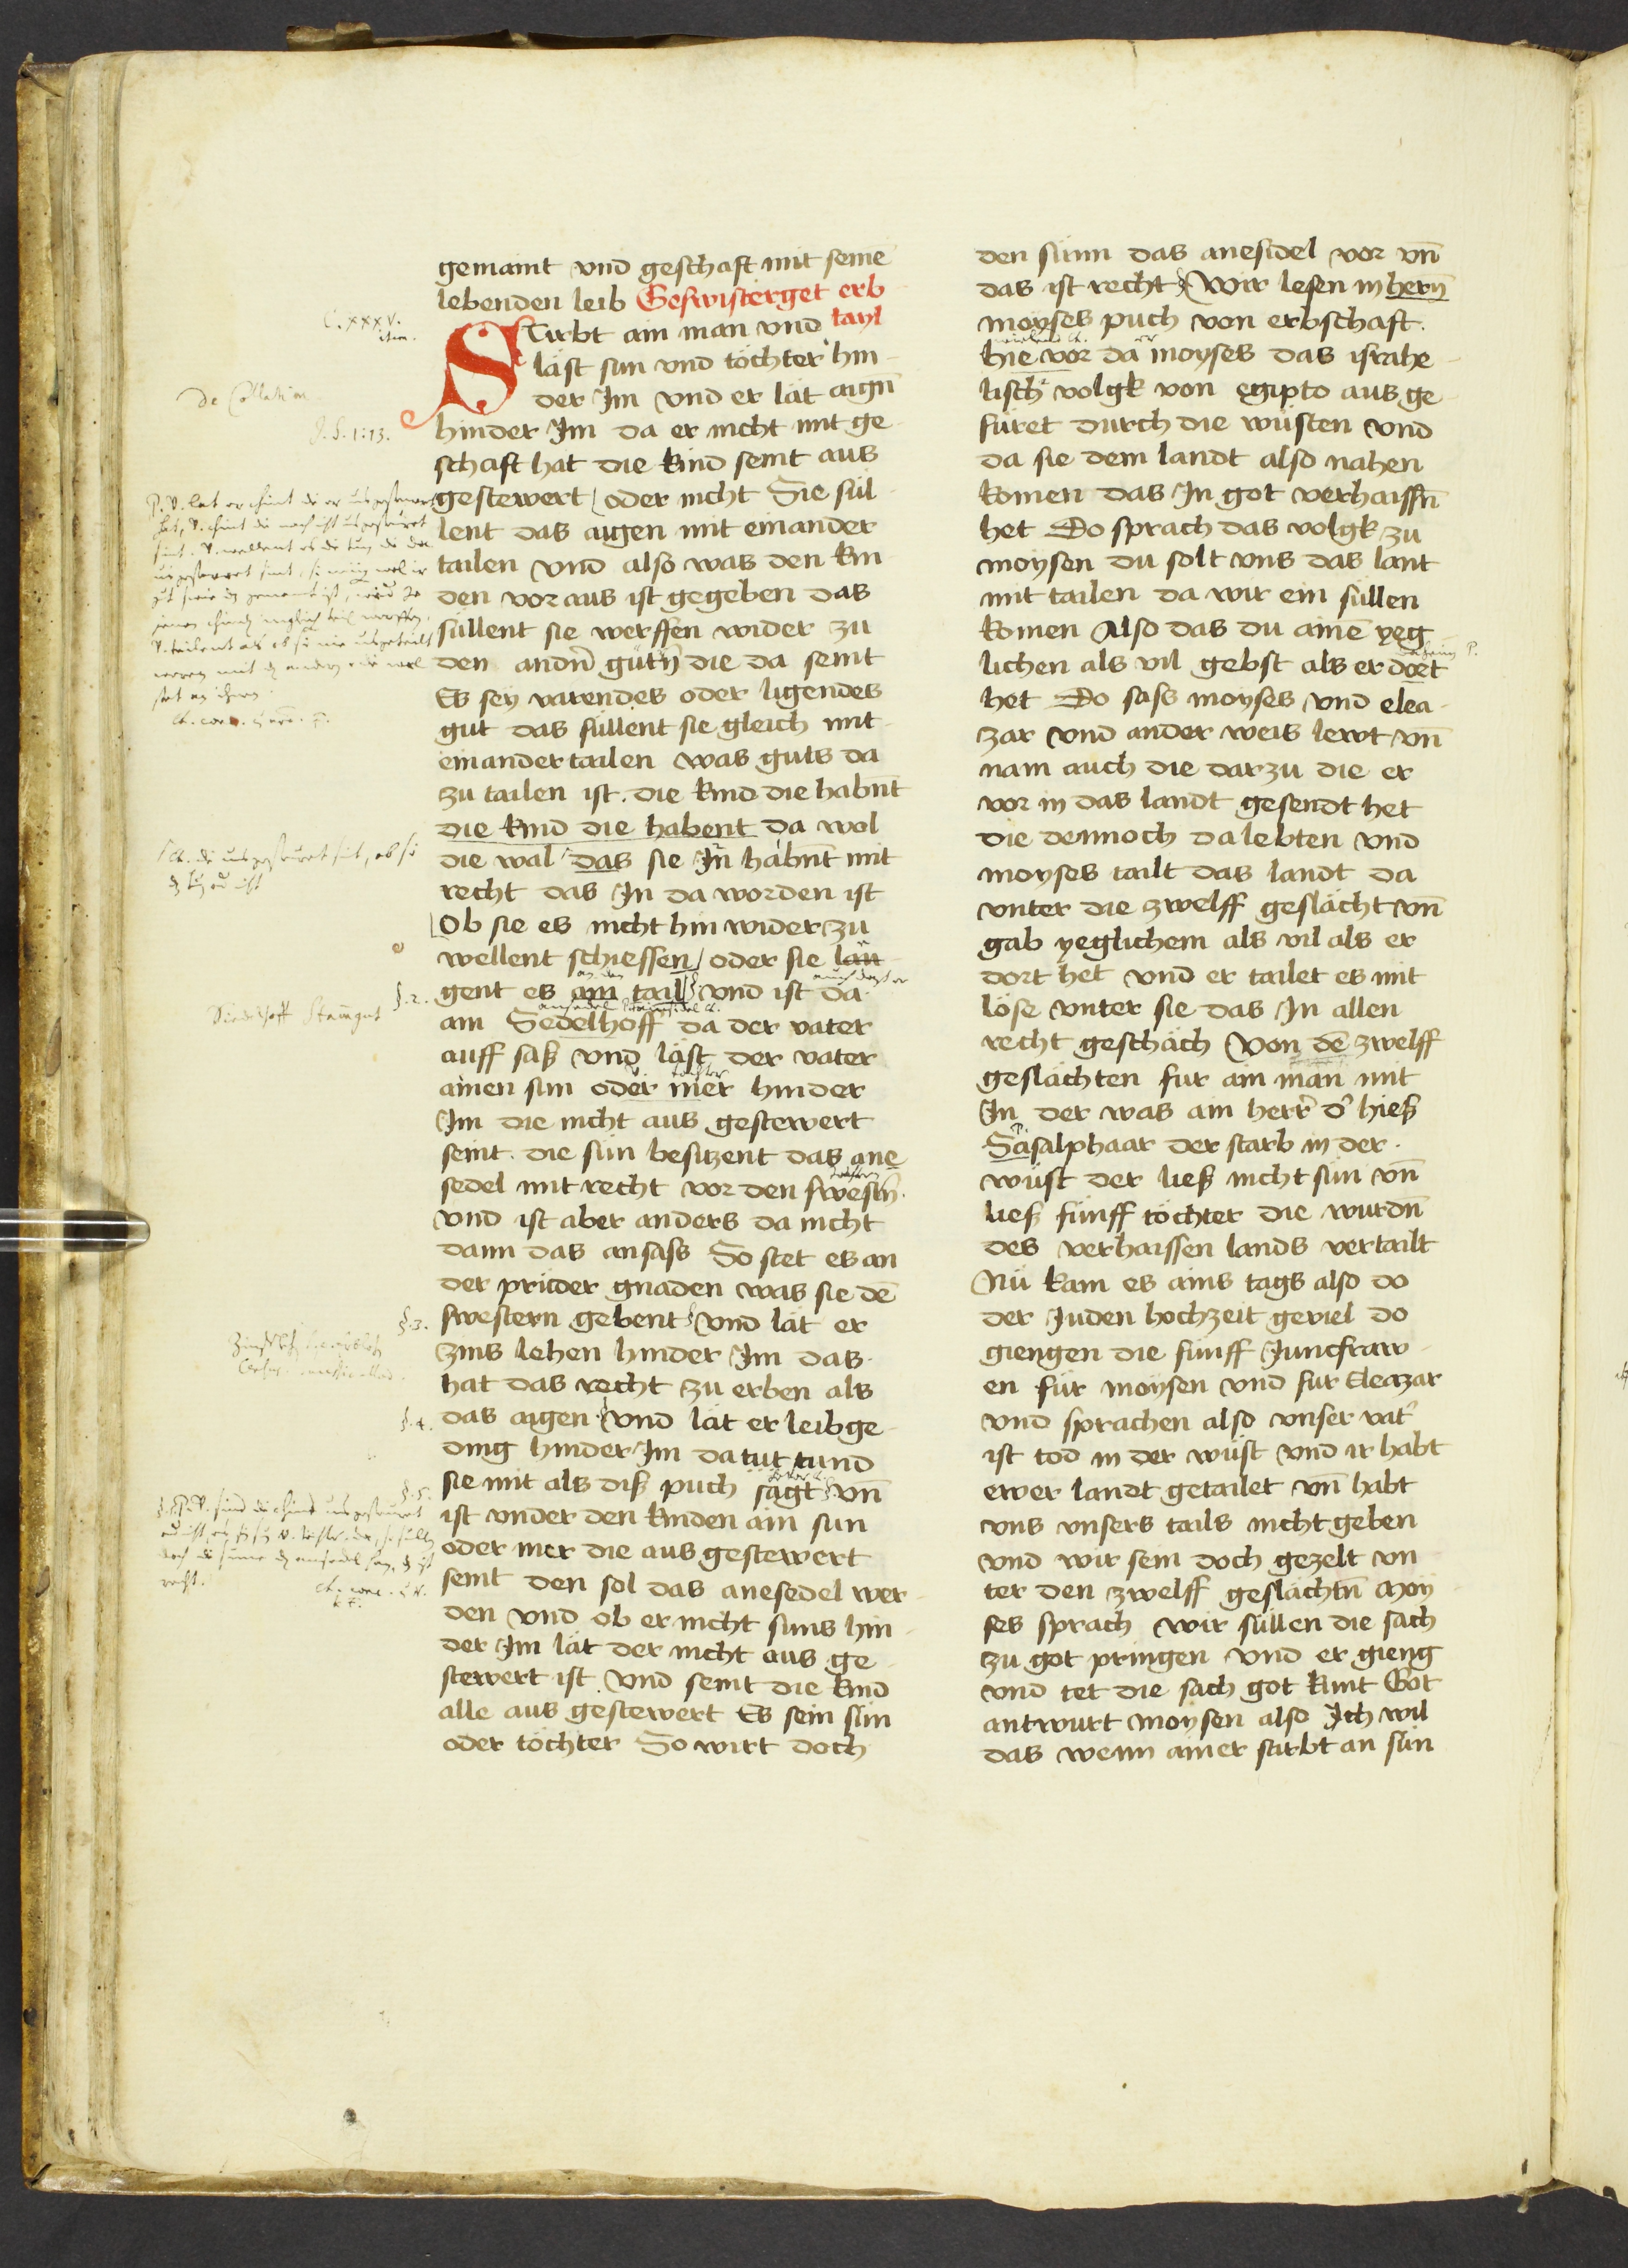 gemaint vnd geschaft mit seinē
lebenden leib Geswisterget erb
tayl
C. XXXV.
Stirbt ain man vnd
läst sun vnd töchter hin
der Im vnd er lät aigñ
hinder Im da er nicht mit ge
schaft hat die kind seint aus
gestewert oder nicht Sie sül
lent das aigen mit einander
tailen vnd also was den kin
den vor aus ist gegeben das
süllent sie werffen wider zu
den andn̄ gütn̄ die da seint
Es sey varendes oder ligendes
gut das süllent sie gleich mit
einander tailen was guts da
zu tailen ist. die kind die habnt
die kind die habent da wol
die wal das sie In habnt mit
recht das In da worden ist
Ob sie es nicht hin wider zu
wellent schiessen oder sie lau
§. 2.
gent es am tail vnd ist da
am Sedelhoff da der vater
auff saß vnd läst der vater
ainen sun oder mer hinder
Im die nicht aus gestewert
seint. die sün besitzent das ane
sedel mit recht vor den swestn̄.
vnd ist aber anders da nicht
dann das ansass So stet es an
der prüder gnaden was sie dē
§. 3.
swestern gebent vnd lät er
zins lehen hinder Im das
hat das recht zu erben als
§. 4.
das aigen vnd lät er leibge
ding hinder Im da tut tund
sie mit als diß puch sagt vn̄
§. 5.
ist vnder den kinden ain sun
oder mer die aus gestewert
seint den sol das anesedel wer
den vnd ob er nicht suns hin
der Im lät der nicht aus ge
stewert ist vnd seint die kind
alle aus gestewert Es sein sün
oder töchter So wirt doch
den sünn das anesidel vor vn̄
das ist recht Wir lesen in hern̄
moyses puch von erbschaft.
hie vor da moyses das israhe
lisch volgk von egipto aus ge
füret durch die wüsten vnd
da sie dem landt also nahen
komen das In got verhaissn̄
het Do sprach das volgk zu
moysen du solt vns das lant
mit tailen da wir ein süllen
komen Also das du ainē yeg
lichen als vil gebst als er dort
het Do sass moyses vnd elea
zar vnd ander weis lewt vn̄
nam auch die darzu die er
vor in das landt gesendt het
die dennoch da lebten vnd
moyses tailt das landt da
vnter die zwelff geslächt vn̄
gab yeglichem als vil als er
dort het vnd er tailet es mit
löse vnter sie das In allen
recht geschäch Von dē zwelff
geslächten fur ain man mit
In der was ain herr d' hieß
Sasalphaar der starb in der
wüst der ließ nicht sün vn̄
ließ fünff töchter die wurdn̄
des verhaissen lands vertailt
Nü kam es ains tags also do
der Juden hochzeit geviel do
giengen die fünff Junckfraw
en für moysen vnd fur Eleazar
vnd sprachen also vnser vat'
ist tod in der wüst vnd ir habt
ewer landt getailet vn̄ habt
vns vnsers tails nicht geben
vnd wir sein doch gezelt vn
ter den zwelff geslächtn̄ Moy
ses sprach wir süllen die sach
zu got pringen vnd er gieng
vnd tet die sach got kunt Got
antwurt moysen also Ich wil
das wenn ainer stirbt an sün